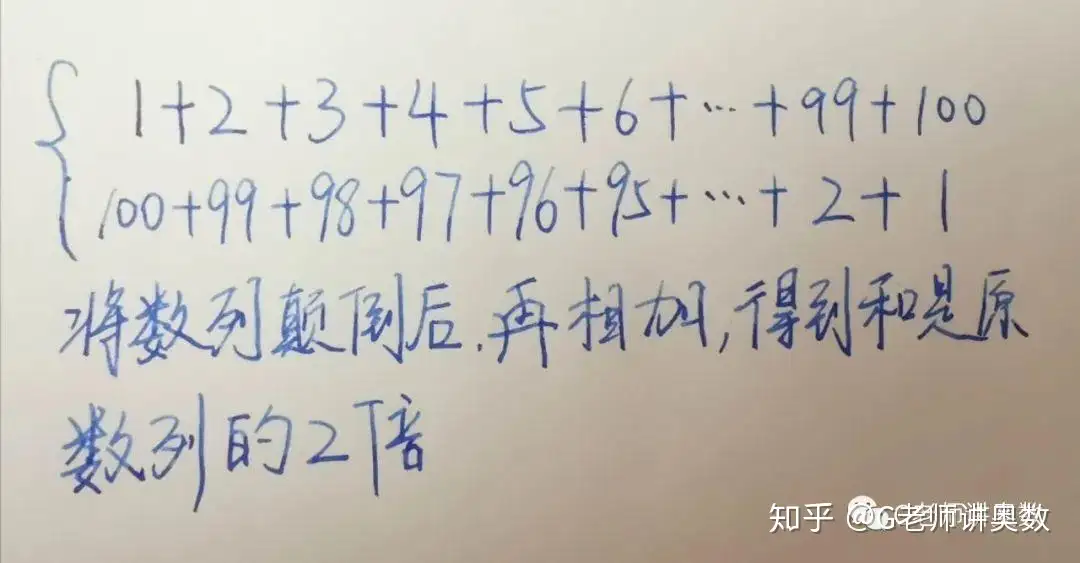 1+2+3+4+5+6+…+99+100
100+99+98+97+96+95+…+2+1
将数列颠倒后.再相加,得到和是原
数列的2倍
知乎 @G老师讲奥数